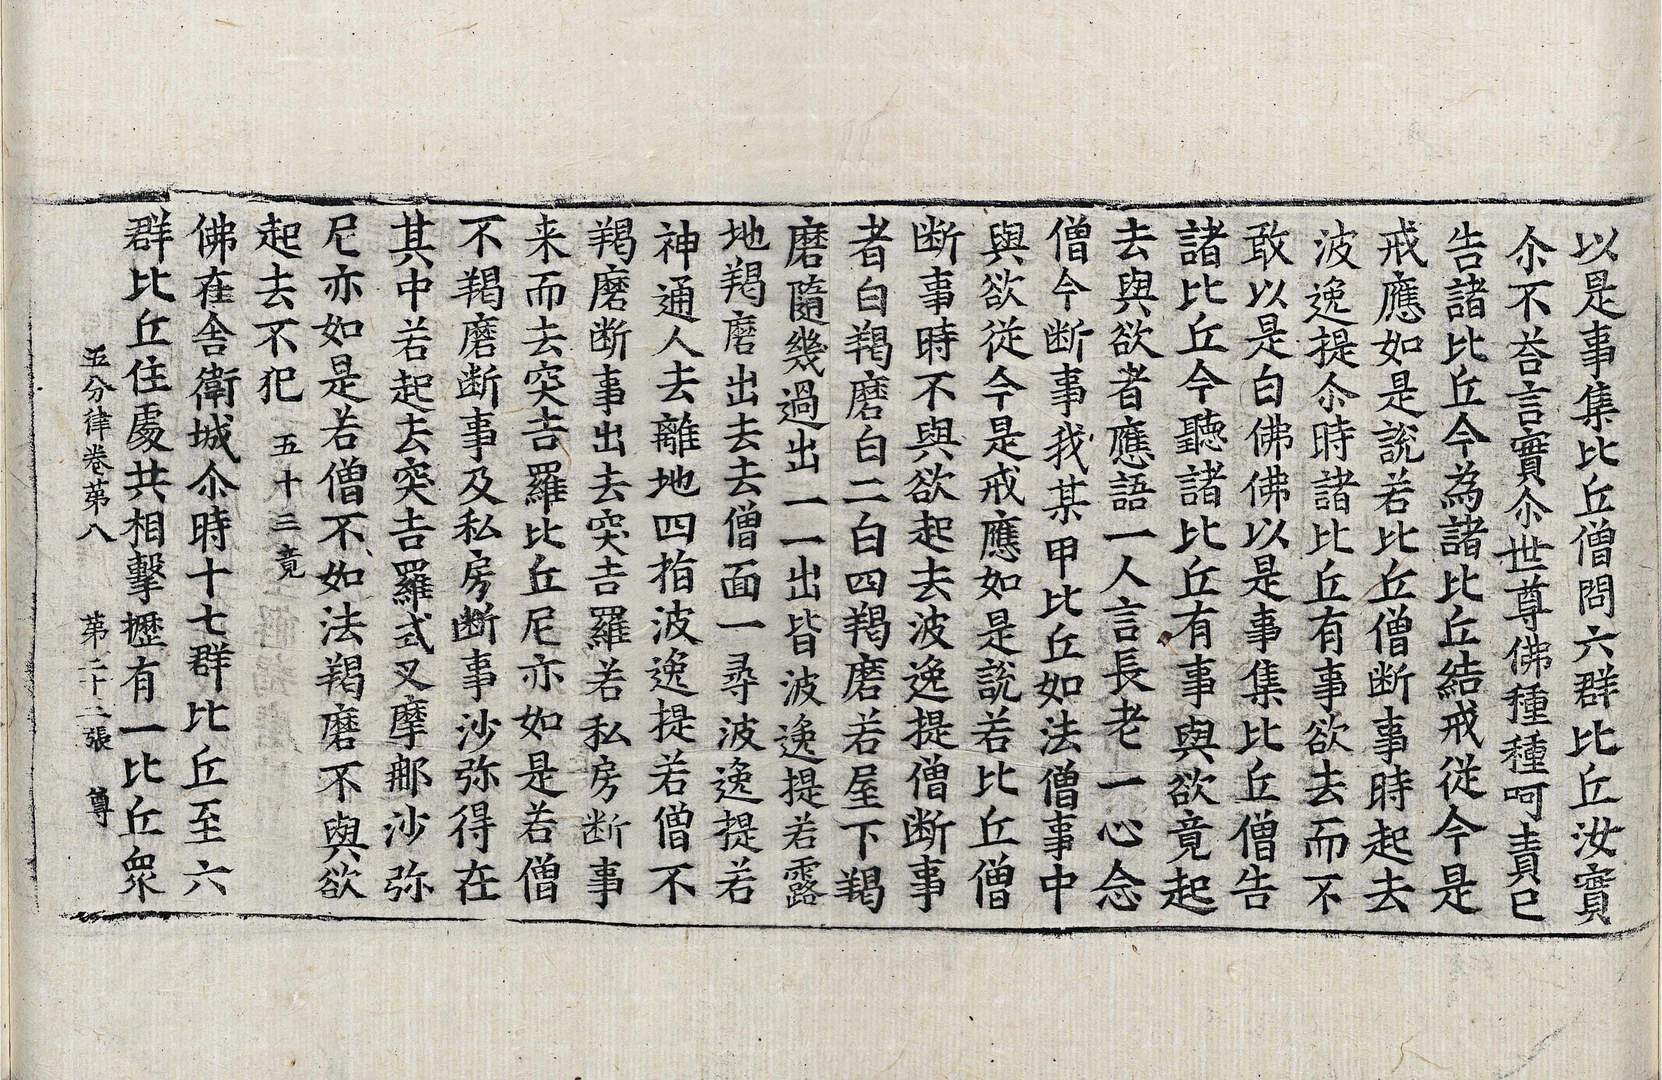 以是事集比丘僧問六群比丘汝實
尒不荅言實尒世尊佛種種呵責已
告諸比丘今為諸比丘結戒從今是
戒應如是說若比丘僧断事時起去
波逸提尒時諸比丘有事欲去而不
敢以是白佛佛以是事集比丘僧告
諸比丘今聽諸比丘有事與欲竟起
去與欲者應語一人言長老一心念
僧今断事我某甲比丘如法僧事中
與欲從今是戒應如是說若比丘僧
断事時不與欲起去波逸提僧断事
者白羯磨白二白四羯磨若屋下羯
磨隨幾過出一一出皆波逸提若露
地羯磨出去去僧面一尋波逸提若
神通人去離地四指波逸提若僧不
羯磨断事出去突吉羅若私房断事
来而去突吉羅比丘尼亦如是若僧
不羯磨断事及私房断事沙弥得在
其中若起去突吉羅式叉摩那沙弥
尼亦如是若僧不如法羯磨不與欲
起去不犯 五十三竟
佛在舍衛城尒時十七群比丘至六
群比丘住處共相擊攊有一比丘衆
五分律卷第八 第二十二張 尊